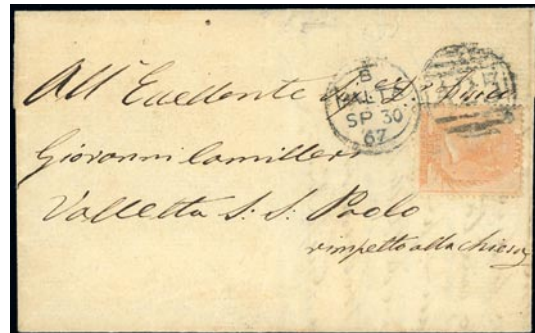 B
MALTA
SP 30
67
All' Eccellente
Giovanni Camilleri
Valletta S: S: Paolo
rimpetto alla chiesa